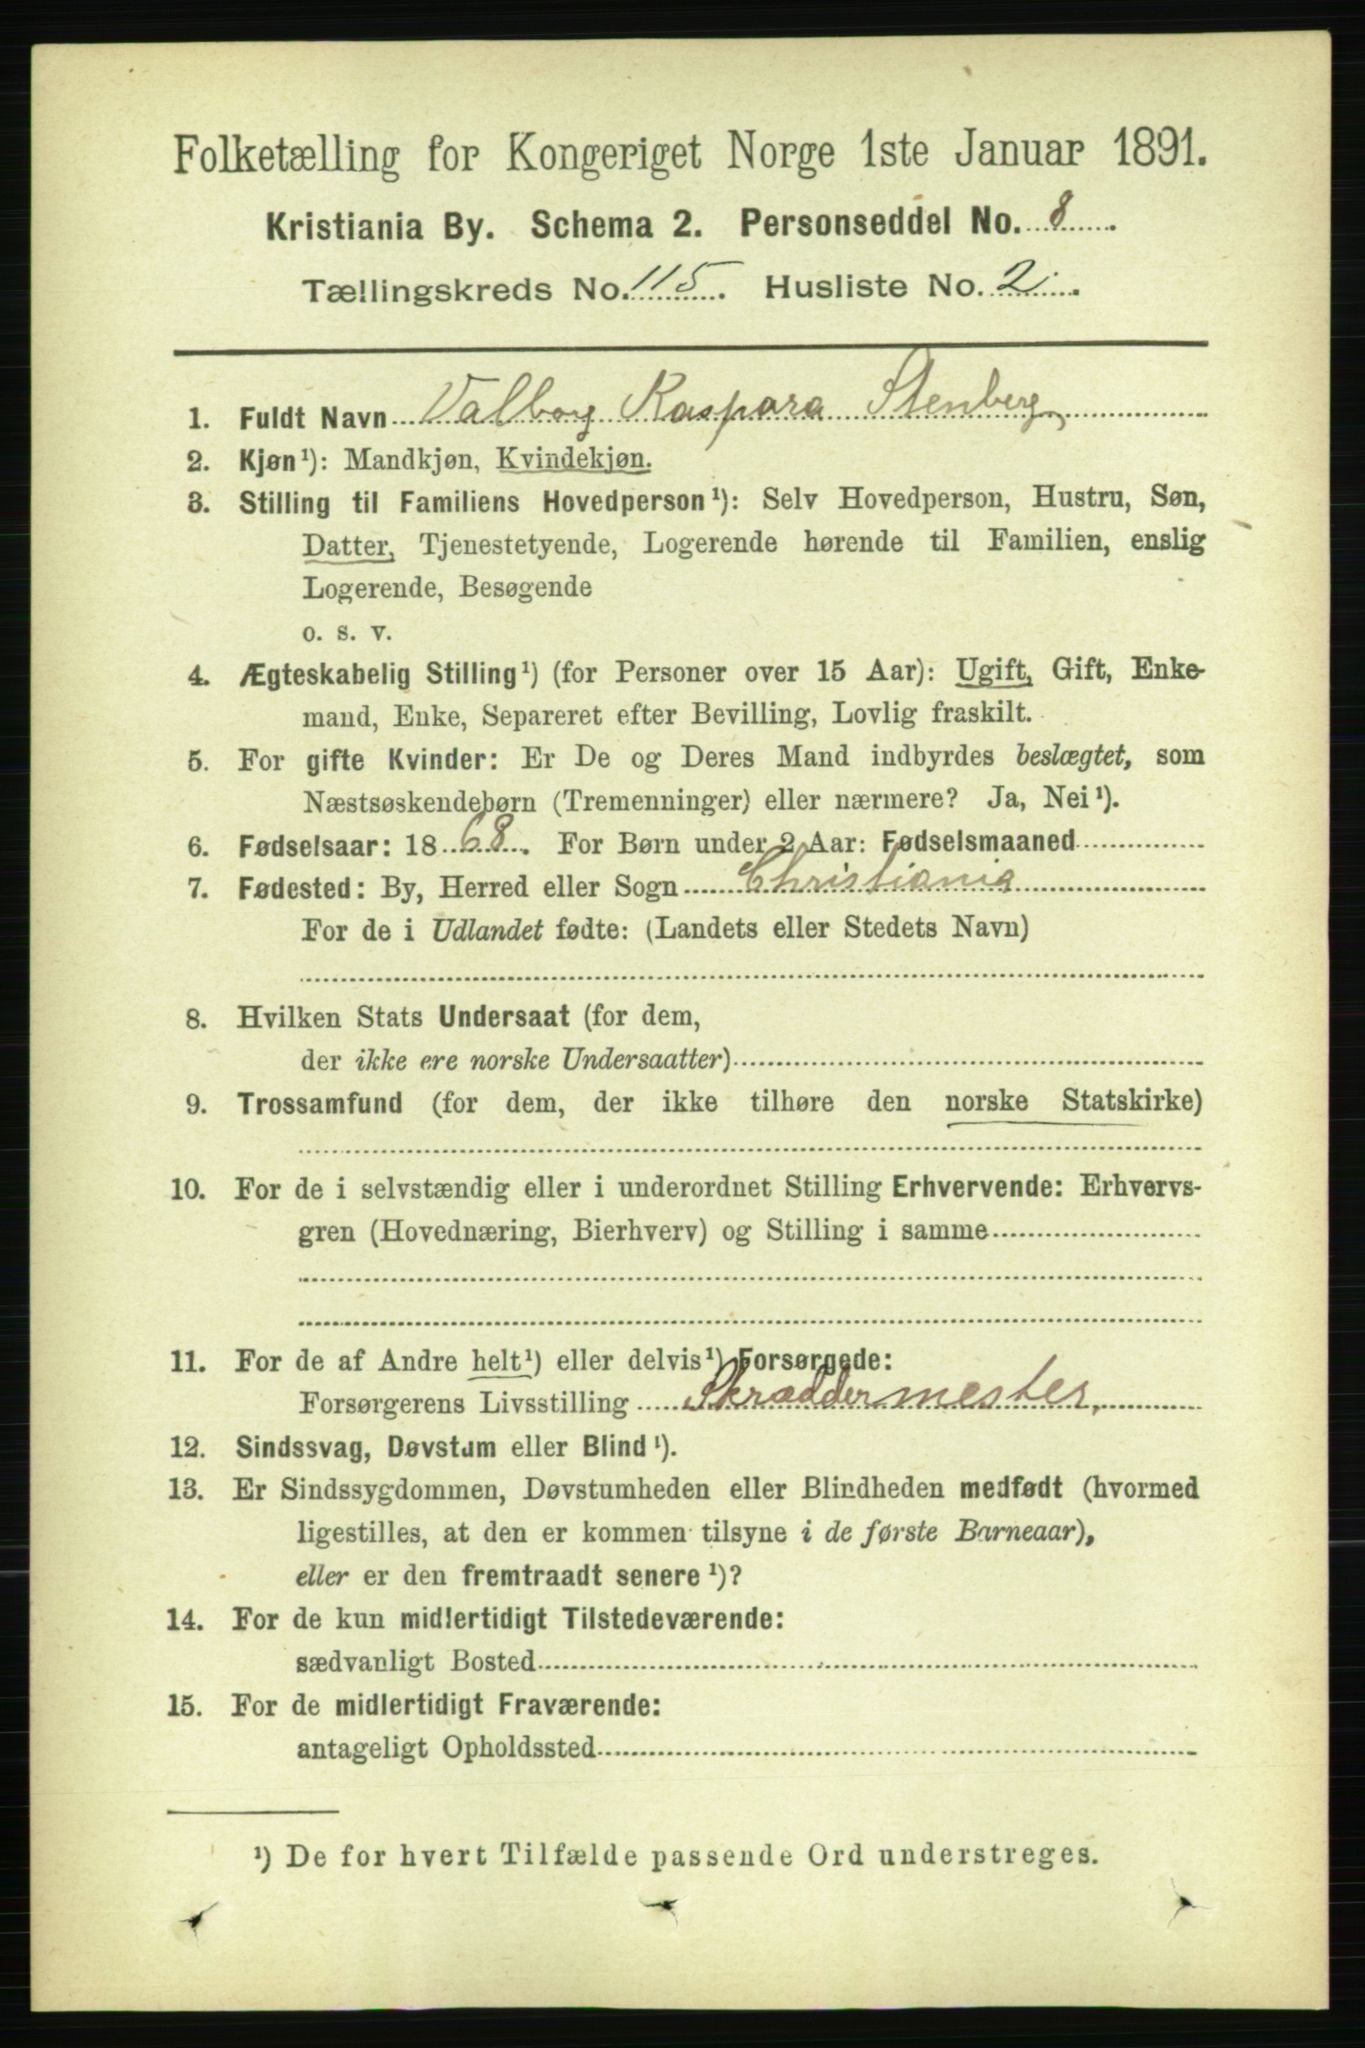 Folketælling for Kongeriget Norge 1ste Januar 1891.
Kristiania By. Schema 2. Personseddel No. 8.
Tællingskreds No. 115. Husliste No. 2.
1. Fuldt Navn Valborg Kaspara Stenberg,
2. Kjøn¹): Mandkjøn, Kvindekjøn.
3. Stilling til Familiens Hovedperson¹): Selv Hovedperson, Hustru, Søn,
Datter, Tjenestetyende, Logerende hørende til Familien, enslig
Logerende, Besøgende
o. s. v.
4. Ægteskabelig Stilling¹) (for Personer over 15 Aar): Ugift, Gift, Enke-
mand, Enke, Separeret efter Bevilling, Lovlig fraskilt.
5. For gifte Kvinder: Er De og Deres Mand indbyrdes beslægtet, som
Næstsøskendebørn (Tremenninger) eller nærmere? Ja, Nei¹).
6. Fødselsaar: 1868. For Børn under 2 Aar: Fødselsmaaned
7. Fødested: By, Herred eller Sogn Christiania
For de i Udlandet fødte: (Landets eller Stedets Navn)
8. Hvilken Stats Undersaat (for dem,
der ikke ere norske Undersaatter)
9. Trossamfund (for dem, der ikke tilhøre den norske Statskirke)
10. For de i selvstændig eller i underordnet Stilling Erhvervende: Erhvervs-
gren (Hovednæring, Bierhverv) og Stilling i samme
11. For de af Andre helt¹) eller delvis¹) Forsørgede:
Forsørgerens Livsstilling Skræddermester,
12. Sindssvag, Døvstum eller Blind¹).
13. Er Sindssygdommen, Døvstumheden eller Blindheden medfødt (hvormed
ligestilles, at den er kommen tilsyne i de første Barneaar),
eller er den fremtraadt senere¹)?
14. For de kun midlertidigt Tilstedeværende:
sædvanligt Bosted
15. For de midlertidigt Fraværende:
antageligt Opholdssted
¹) De for hvert Tilfælde passende Ord understreges.